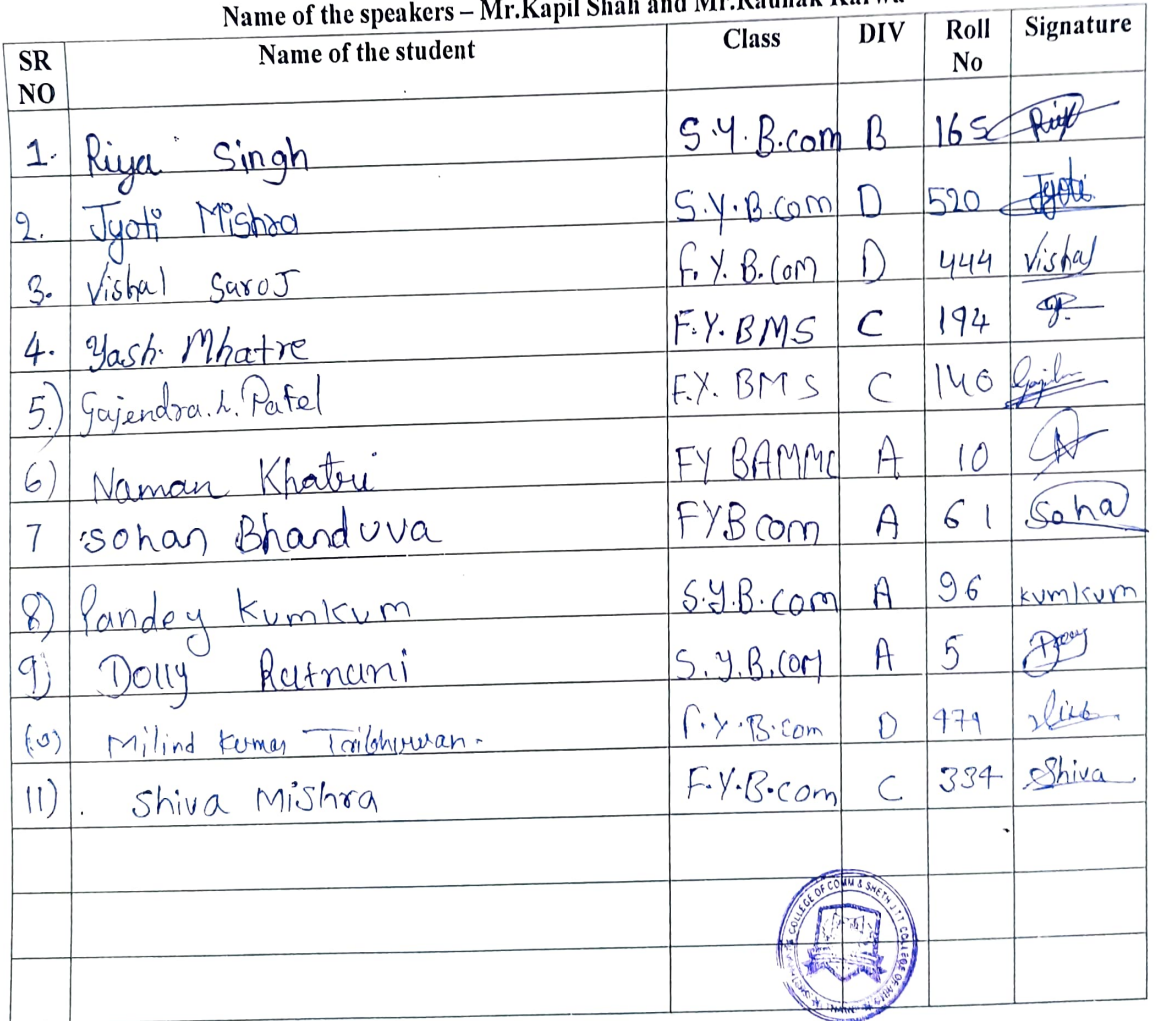 Name of the speakers – Mr.Kapil Shah and Mr.Raunak
SR NO Name of the student Class DIV Roll No Signature
1. Riya Singh S.Y.B.com B 165 Riya
2. Jyoti Mishra S.Y.B.com D 520 Jyoti
3. Vishal Saroj F.Y.B.Com D 444 Vishal
4. Yash Mhatre F.Y.BMS C 194
5.) Gajendra.h.Patel F.Y. BMS C 140
6) Naman Khatri FY BAMMC A 10
7 sohan Bhanduva FYB com A 61 Soha
8) Pandey Kumkum S.Y.B.com A 96 kumkum
9) Dolly Ratnani S.Y.B.COM A 5
10) Milind Kumar F.Y.B.com D 479
11) Shiva Mishra F.Y.B.com C 334 Shiva
COLLEGE OF COMM & SHETH J.T.T COLLEGE OF ARTS